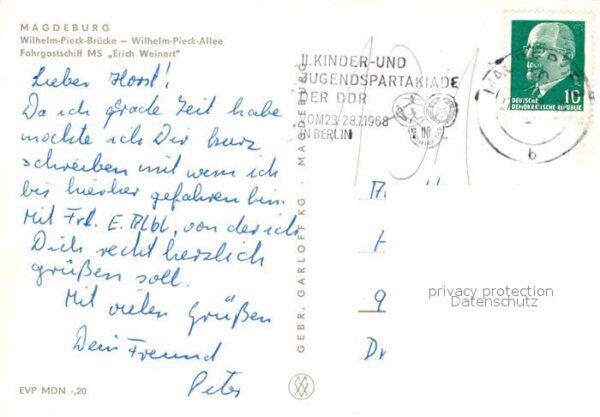 MAGDEBURG
Wilhelm-Pieck-Brücke – Wilhelm-Pieck-Allee
Fahrgastschiff MS „Erich Weinert"
Lieber Horst!
Da ich grade Zeit habe
möchte ich Dir kurz
schreiben mit wem ich
bis hierher gefahren bin.
Mit Frl. E. von der ich
Dich recht herzlich
grüßen soll.
Mit vielen Grüßen
Dein Freund
Peter
EVP MDN -,20
GEBR. GARLOFF KG · MAGDEBURG
II. KINDER-UND
JUGENDSPARTAKIADE
DER DDR
VOM 23.-28.7.1968
IN BERLIN
DEUTSCHE
DEMOKRATISCHE REPUBLIK
10
b
privacy protection
Datenschutz